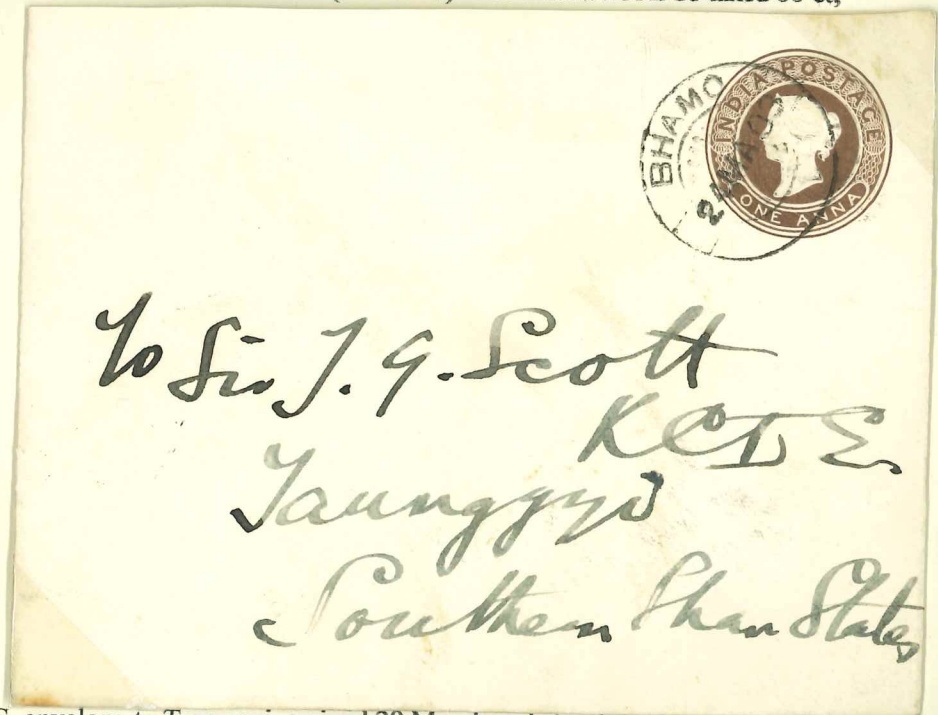 BHAMO
INDIA POSTAGE
ONE ANNA
To Sir J. G. Scott
KCIE
Taunggyi
Southern Shan States